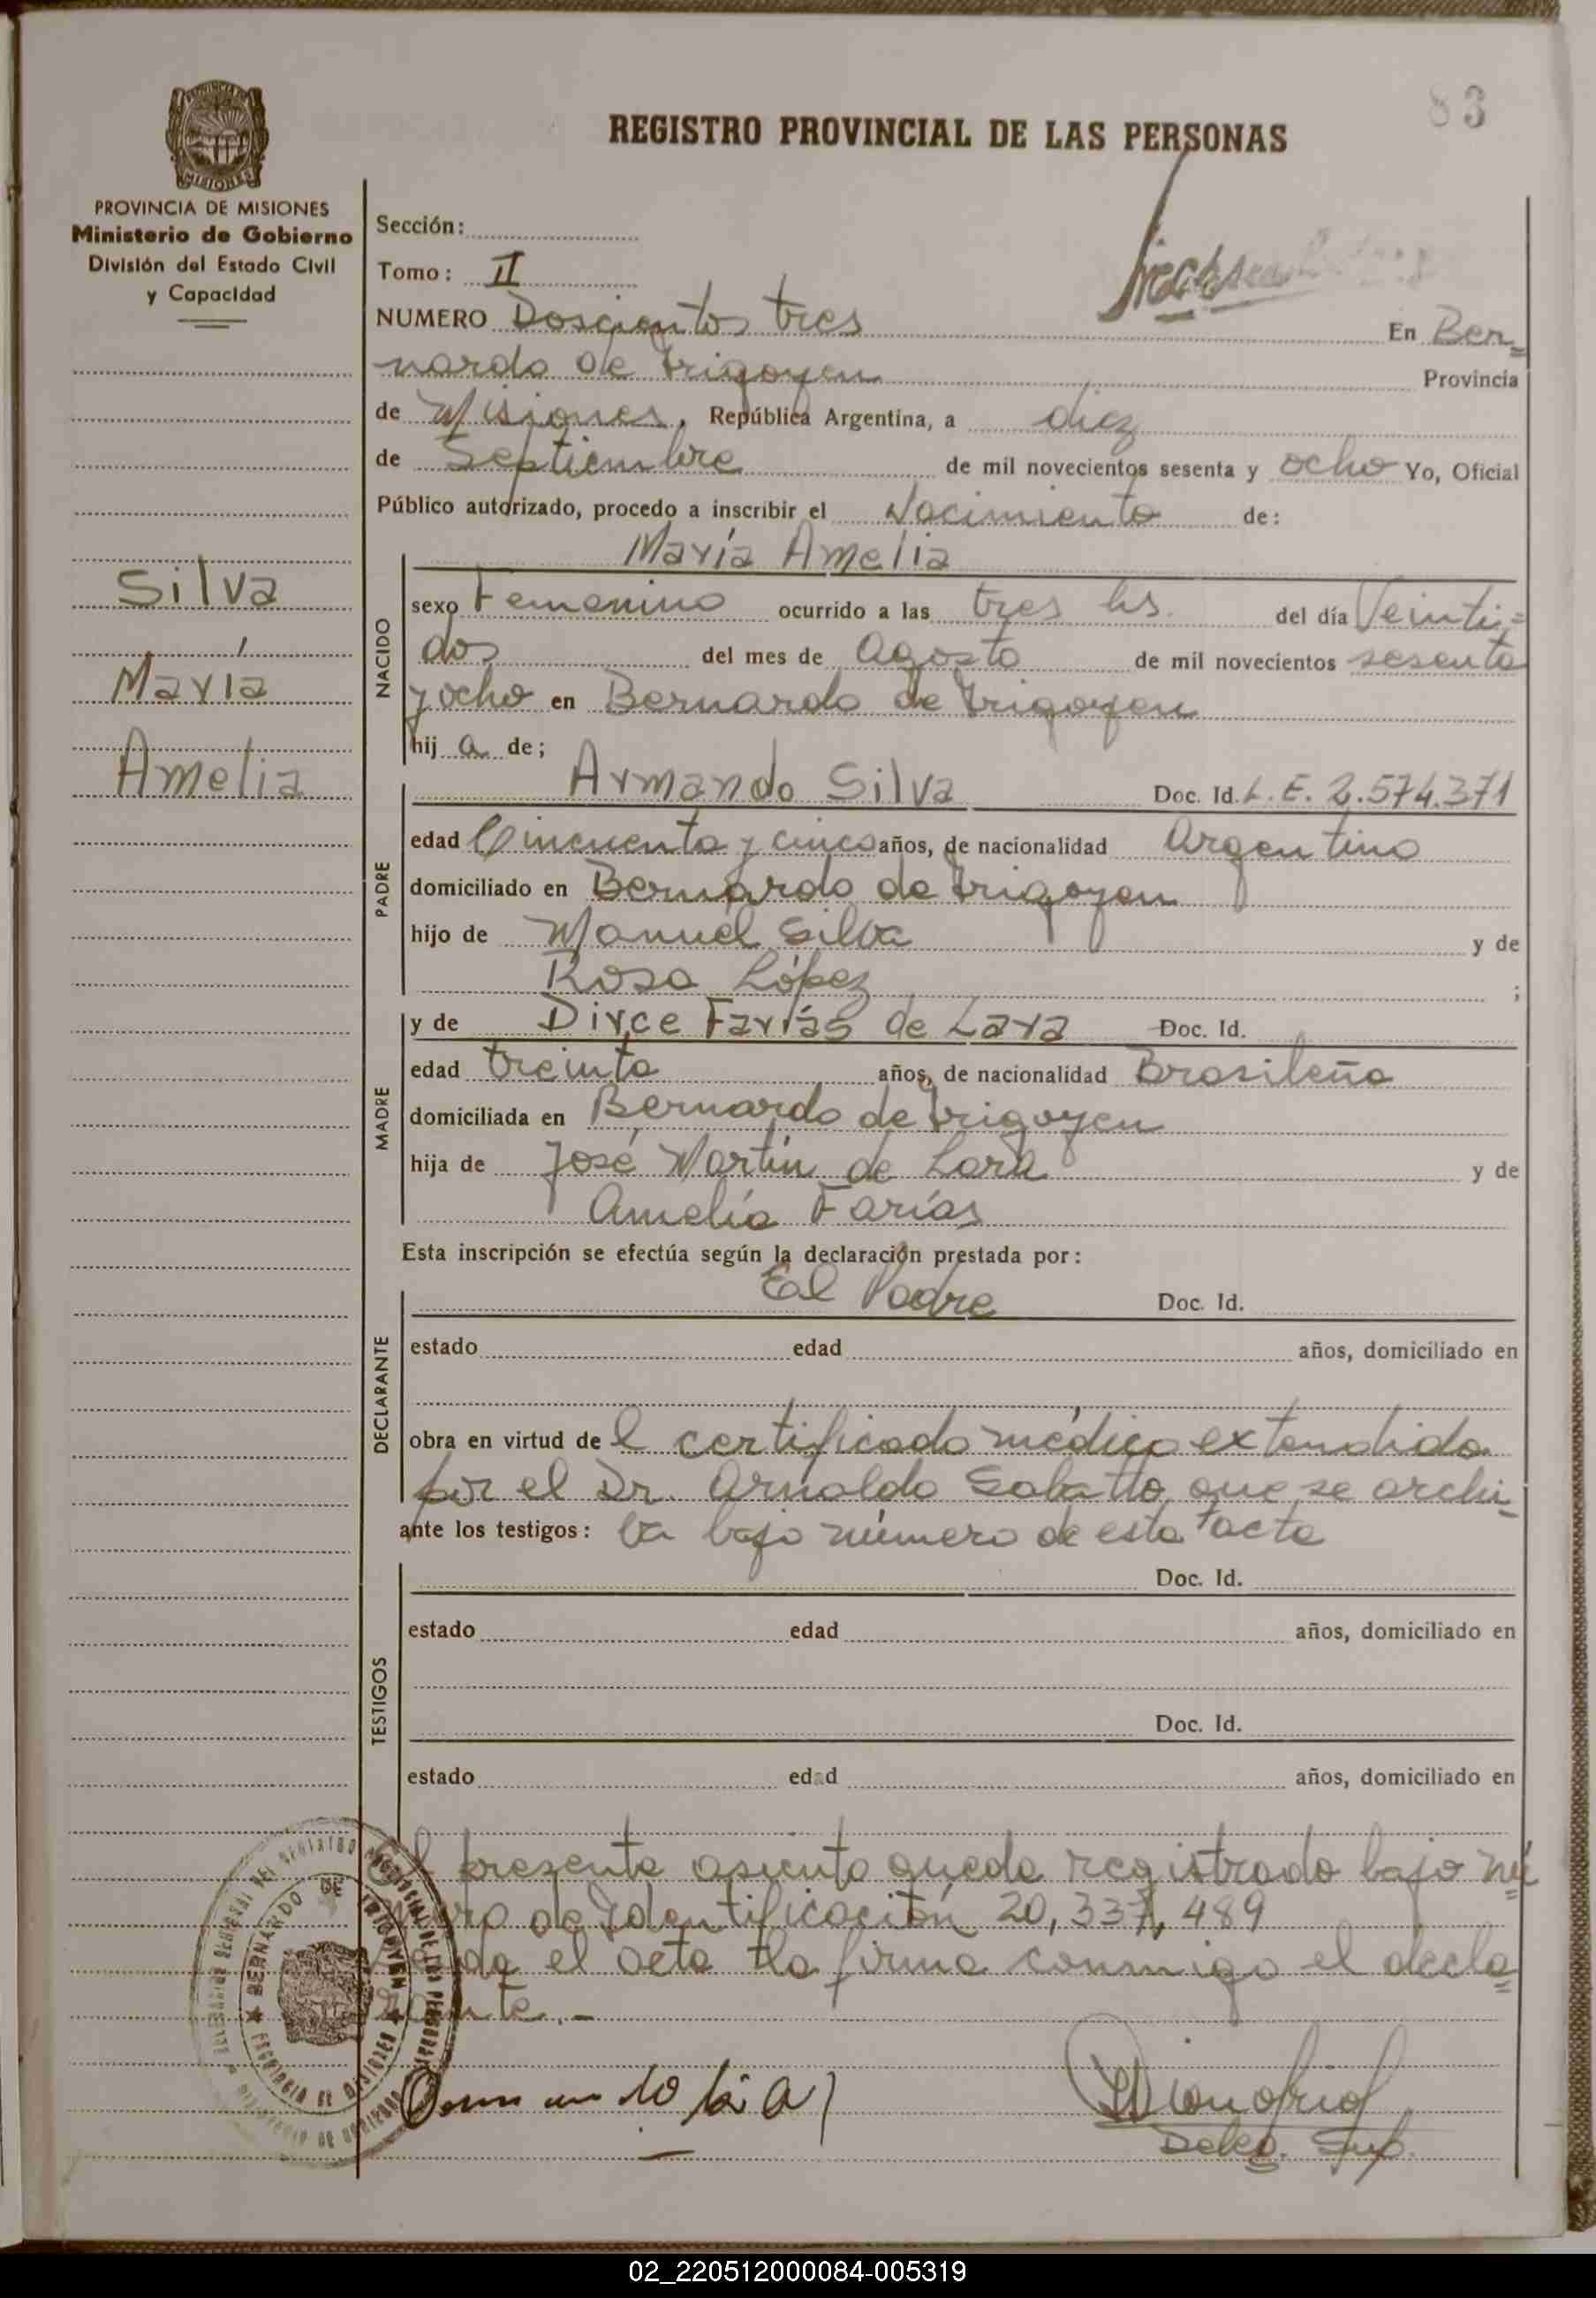 83
REGISTRO PROVINCIAL DE LAS PERSONAS
PROVINCIA DE MISIONES
Ministerio de Gobierno
División del Estado Civil
y Capacidad
Sección:
Tomo: II
NUMERO Doscientos tres En Ber=
nardo de Irigoyen Provincia
de Misiones, República Argentina, a diez
de Septiembre de mil novecientos sesenta y ocho Yo, Oficial
Público autorizado, procedo a inscribir el Nacimiento de:
Silva
María
Amelia
NACIDO
María Amelia
sexo Femenino ocurrido a las tres hs. del día Veinti=
dos del mes de Agosto de mil novecientos sesenta
y ocho en Bernardo de Irigoyen
hij a de;
PADRE
Armando Silva Doc. Id. L.E. 2.574.371
edad Cincuenta y cinco años, de nacionalidad Argentino
domiciliado en Bernardo de Irigoyen
hijo de Manuel Silva y de
Rosa López ;
MADRE
y de Dirce Farías de Lara Doc. Id.
edad treinta años, de nacionalidad Brasileña
domiciliada en Bernardo de Irigoyen
hija de José Martín de Lara y de
Amelia Farías
Esta inscripción se efectúa según la declaración prestada por:
DECLARANTE
El Padre Doc. Id.
estado edad años, domiciliado en
obra en virtud de l certificado médico extendido
por el Dr. Arnaldo Sabatto, que se archi-
ante los testigos: va bajo número de esta acta
TESTIGOS
Doc. Id.
estado edad años, domiciliado en
Doc. Id.
estado edad años, domiciliado en
El presente asiento queda registrado bajo nú=
mero de Identificación 20,337,489
Leida el acta la firma conmigo el decla=
rante.-
BERNARDO DE IRIGOYEN
PROVINCIA DE MISIONES
Deleg. Sup.
02_220512000084-005319